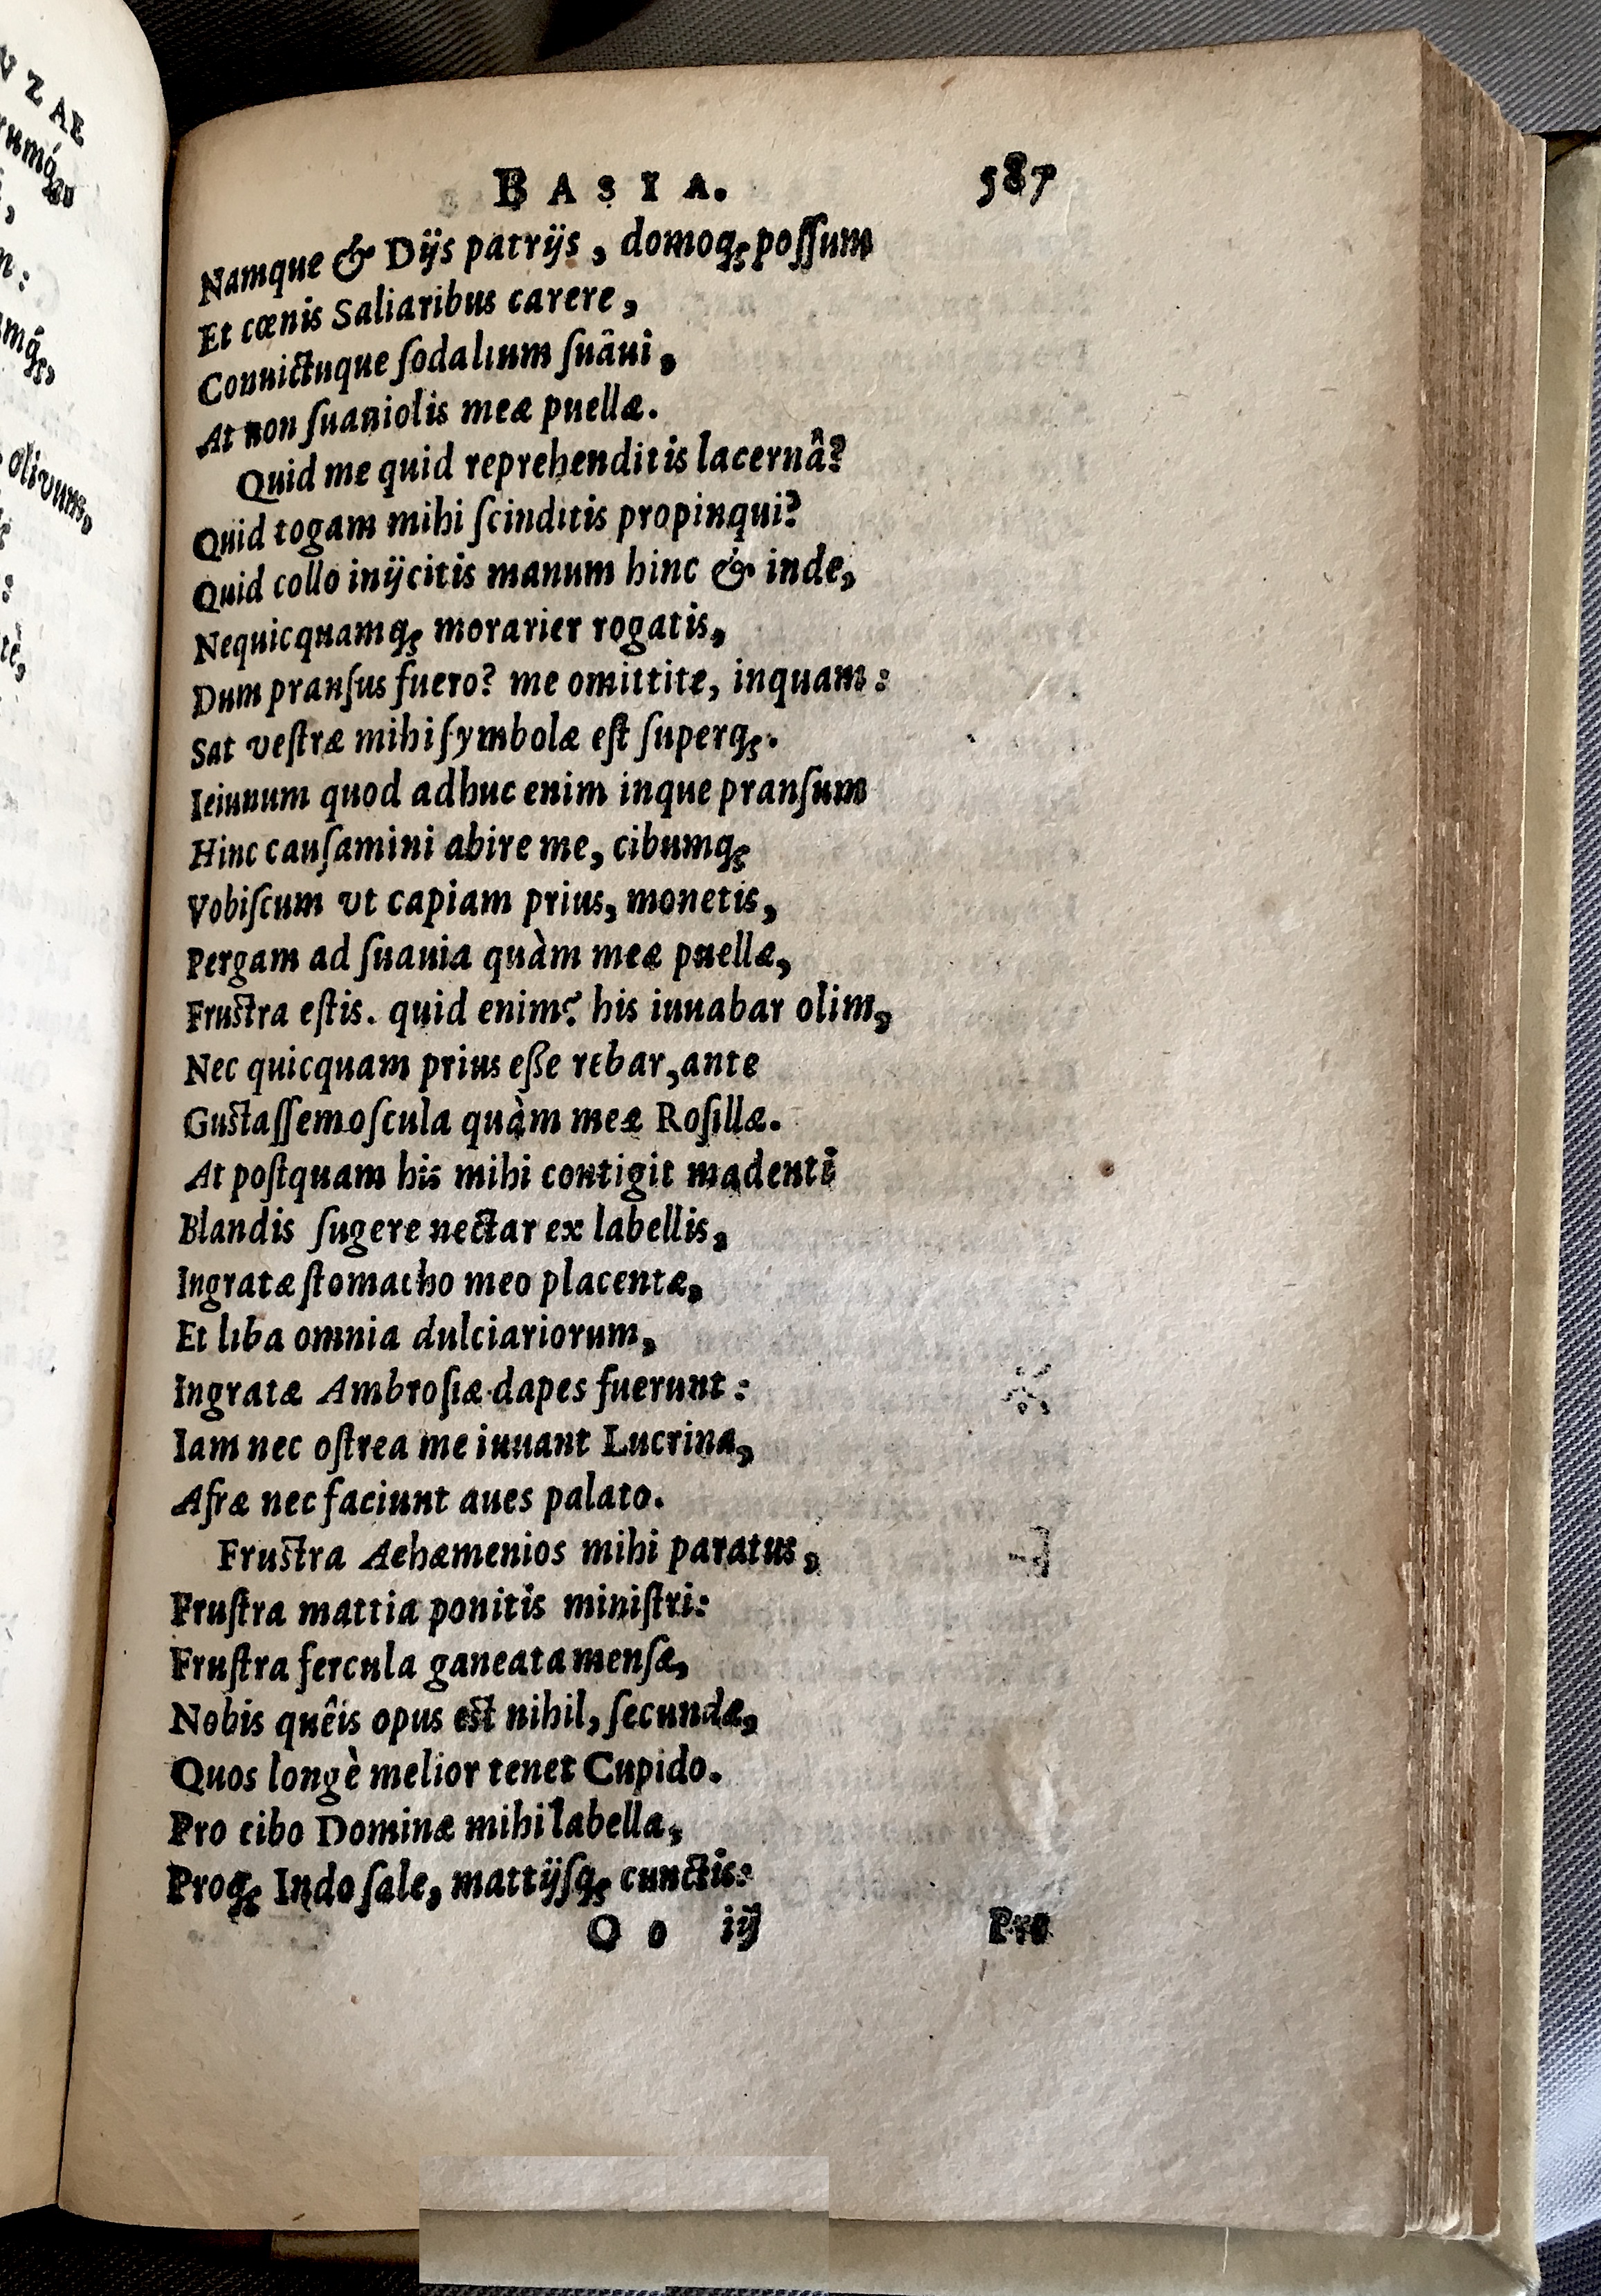 BASIA. 587
Namque & Dijs patrijs, domoq; possum
Et cœnis Saliaribus carere,
Conuictuque sodalium suâui,
At non suauiolis meæ puellæ.
Quid me quid reprehenditis lacernâ?
Quid togam mihi scinditis propinqui?
Quid collo inijcitis manum hinc & inde,
Nequicquamq; morarier rogatis,
Dum pransus fuero? me omittite, inquam:
Sat vestræ mihi symbolæ est superq;.
Ieiunum quod adhuc enim inque pransum
Hinc causamini abire me, cibumq;
Vobiscum vt capiam prius, monetis,
Pergam ad suauia quàm meæ puellæ,
Frustra estis. quid enim? his iuuabar olim,
Nec quicquam prius esse rebar, ante
Gustassem oscula quàm meæ Rosillæ.
At postquam his mihi contigit madenti
Blandis sugere nectar ex labellis,
Ingratæ stomacho meo placentæ,
Et liba omnia dulciariorum,
Ingratæ Ambrosiæ dapes fuerunt:
Iam nec ostrea me iuuant Lucrina,
Afræ nec faciunt aues palato.
Frustra Aehæmenios mihi paratus,
Frustra mattia ponitis ministri:
Frustra fercula ganeata mensæ,
Nobis quêis opus est nihil, secundæ,
Quos longè melior tenet Cupido.
Pro cibo Dominæ mihi labella,
Proq; Indo sale, mattijsq; cunctis:
Oo iij Pro